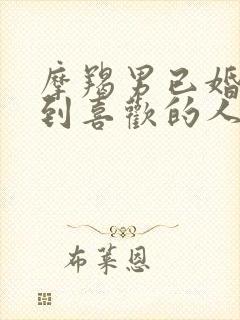 摩羯男已婚
到喜歡的人
布萊恩